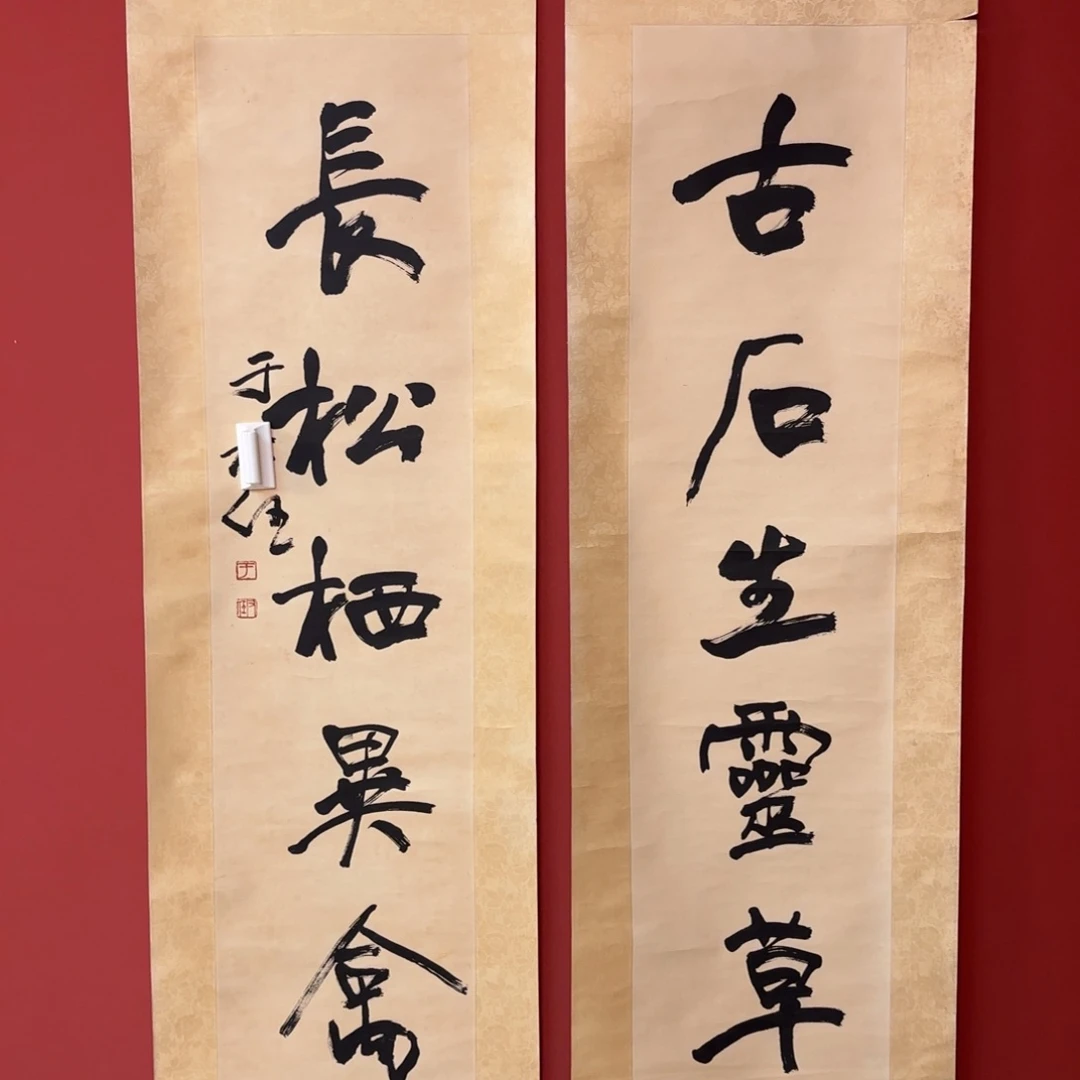 古石生靈草
長松栖異禽
于
任